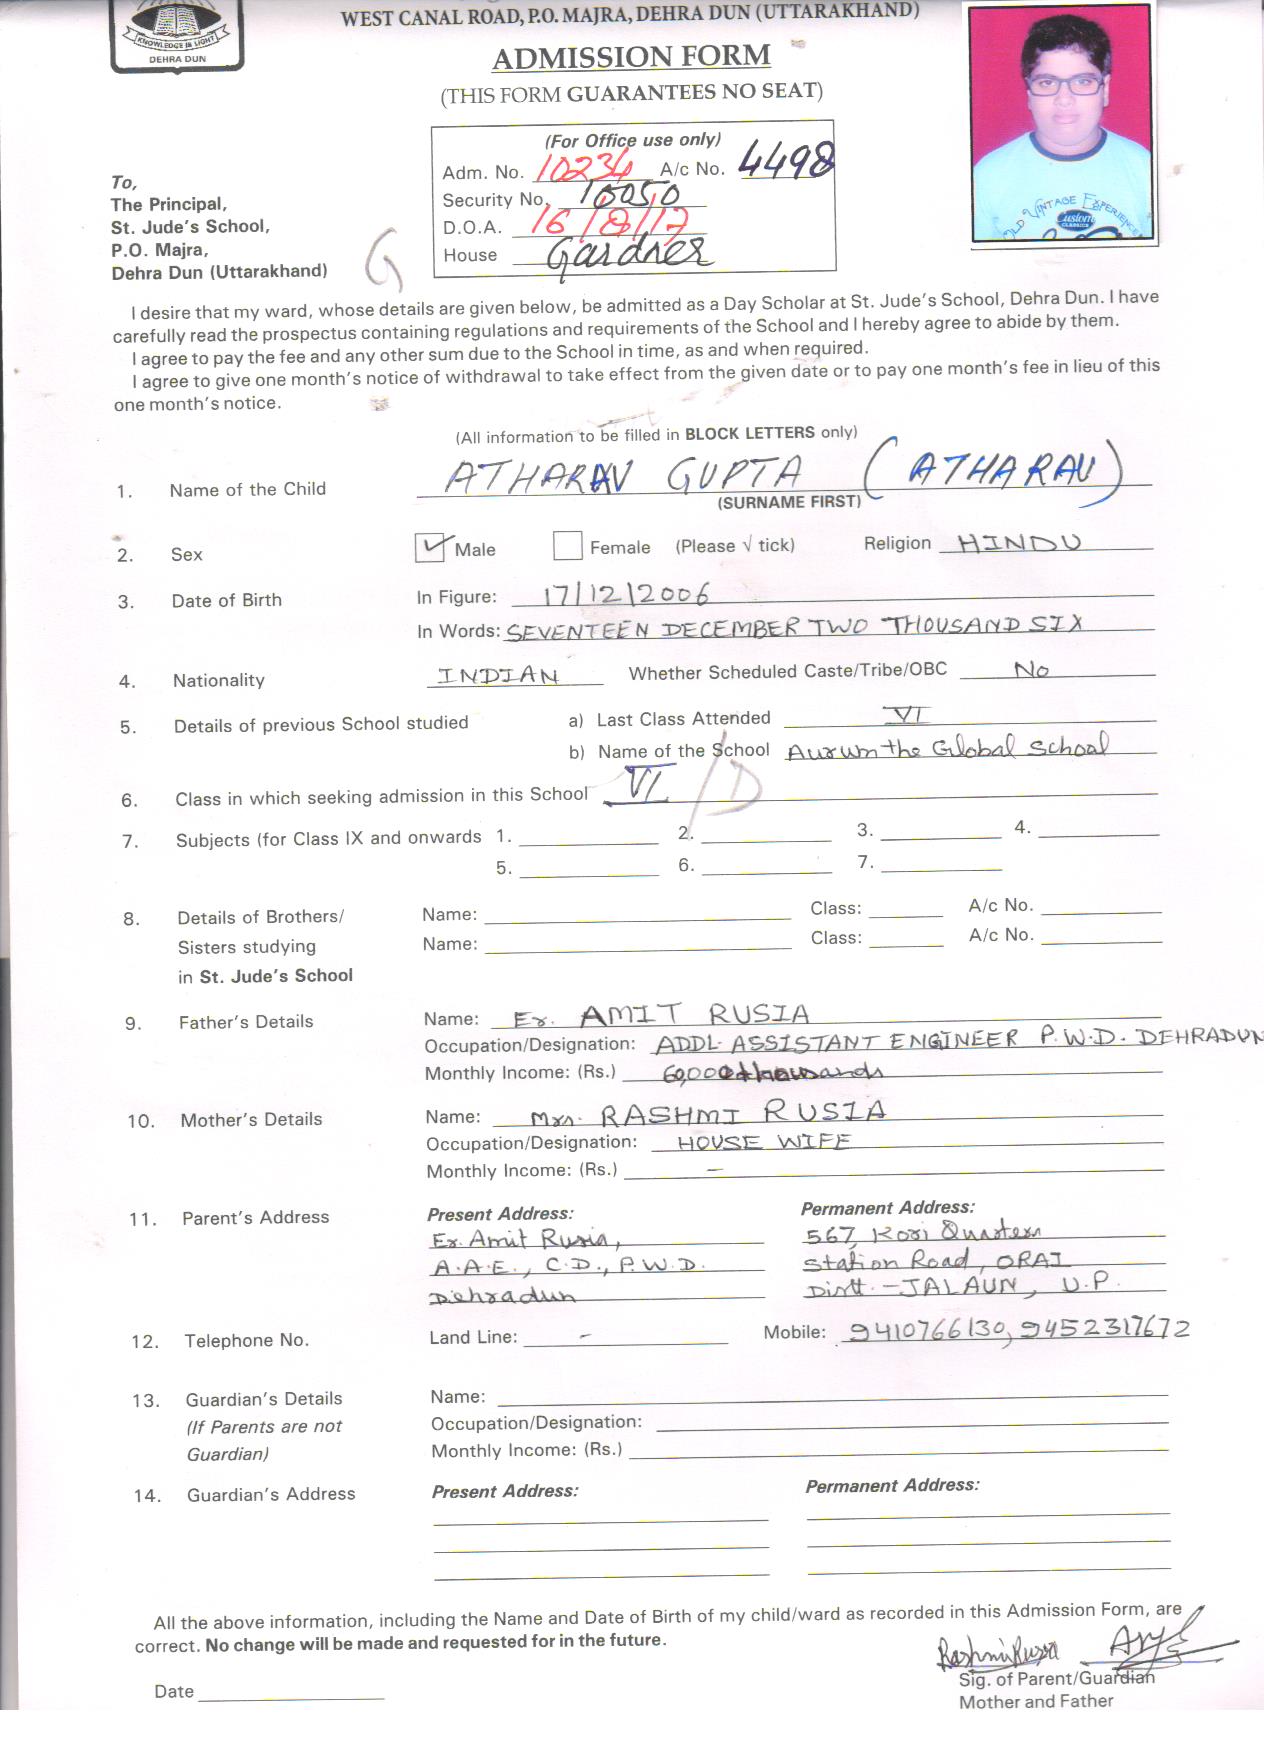 WEST CANAL ROAD, P.O. MAJRA, DEHRA DUN (UTTARAKHAND)
KNOWLEDGE IS LIGHT
DEHRA DUN
ADMISSION FORM
(THIS FORM GUARANTEES NO SEAT)
(For Office use only)
Adm. No. 10234 A/c No. 4498
Security No. 10050
D.O.A. 16/8/17
House Gardner
G
To,
The Principal,
St. Jude's School,
P.O. Majra,
Dehra Dun (Uttarakhand)
OLD VINTAGE EXPERIENCE
Custom
I desire that my ward, whose details are given below, be admitted as a Day Scholar at St. Jude's School, Dehra Dun. I have
carefully read the prospectus containing regulations and requirements of the School and I hereby agree to abide by them.
I agree to pay the fee and any other sum due to the School in time, as and when required.
I agree to give one month's notice of withdrawal to take effect from the given date or to pay one month's fee in lieu of this
one month's notice.
(All information to be filled in BLOCK LETTERS only)
1. Name of the Child ATHARAV GUPTA (ATHARAV)
(SURNAME FIRST)
2. Sex ✓ Male Female (Please √ tick) Religion HINDU
3. Date of Birth In Figure: 17/12/2006
In Words: SEVENTEEN DECEMBER TWO THOUSAND SIX
4. Nationality INDIAN Whether Scheduled Caste/Tribe/OBC No
5. Details of previous School studied a) Last Class Attended VI
b) Name of the School Aurum the Global School
6. Class in which seeking admission in this School VI /D
7. Subjects (for Class IX and onwards 1. 2. 3. 4.
5. 6. 7.
8. Details of Brothers/ Name: Class: A/c No.
Sisters studying Name: Class: A/c No.
in St. Jude's School
9. Father's Details Name: Er. AMIT RUSIA
Occupation/Designation: ADDL. ASSISTANT ENGINEER P.W.D. DEHRADUN
Monthly Income: (Rs.) 60,000 thousands
10. Mother's Details Name: Mrs. RASHMI RUSIA
Occupation/Designation: HOUSE WIFE
Monthly Income: (Rs.) –
11. Parent's Address Present Address: Permanent Address:
Er. Amit Rusia, 567, Kori Quarters
A.A.E., C.D., P.W.D. Station Road, ORAI
Dehradun Distt. – JALAUN, U.P.
12. Telephone No. Land Line: – Mobile: 9410766130, 9452317672
13. Guardian's Details Name:
(If Parents are not Occupation/Designation:
Guardian) Monthly Income: (Rs.)
14. Guardian's Address Present Address: Permanent Address:
All the above information, including the Name and Date of Birth of my child/ward as recorded in this Admission Form, are
correct. No change will be made and requested for in the future.
Rashmi Rusia
Sig. of Parent/Guardian
Date
Mother and Father